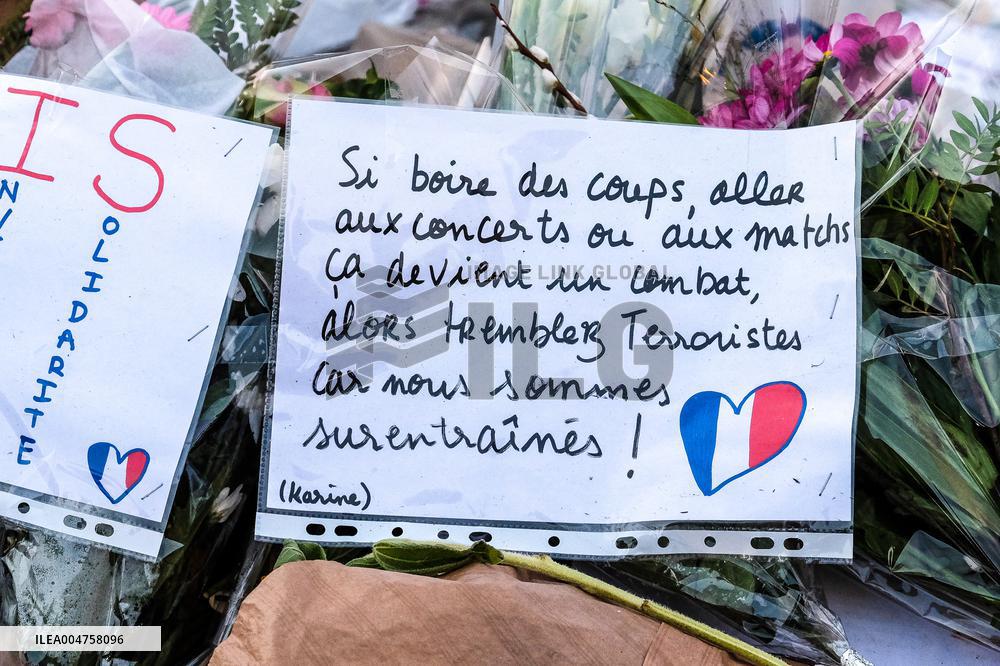 IS
N
SOLIDARITE
Si boire des coups, aller
aux concerts ou aux matchs
ça devient un combat,
alors tremblez Terroristes
Car nous sommes
surentraînés !
(Karine)
IMAGE LINK GLOBAL
ILG
ILEA004758096